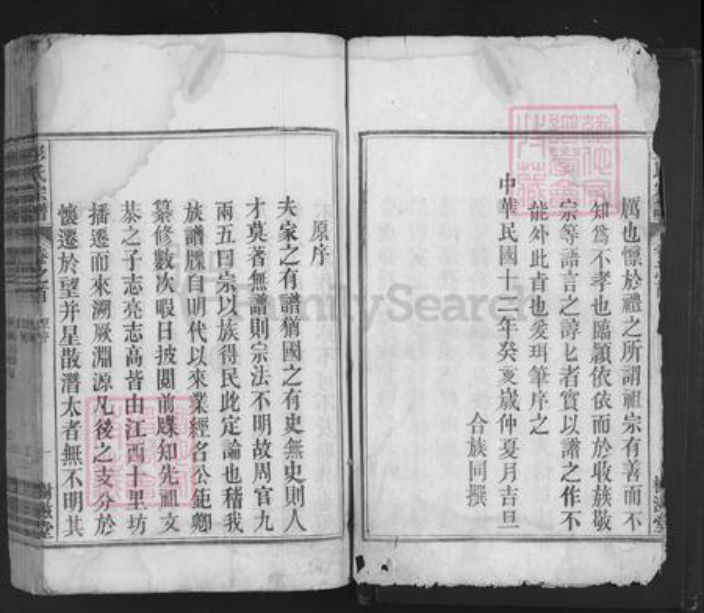 厲也懔於禮之所謂祖宗有善而不
知爲不孝也臨穎依依而於收族敬
宗等語言之諄匕者實以譜之作不
能外此旨也爰珥筆序之
中華民國十二年癸亥嵗仲夏月吉旦
合族同撰
原序
夫家之有譜猶國之有史無史則人
才莫著無譜則宗法不明故周官九
兩五曰宗以族得民此定論也稽我
族譜牒自明代以來業經名公鉅卿
纂修數次暇日披閱前牒知先祖文
棻之子志亮志高皆由江西十里坊
播遷而來溯厥淵源凡後之支分於
懷遷於望并星散潛太者無不明其
FamilySearch